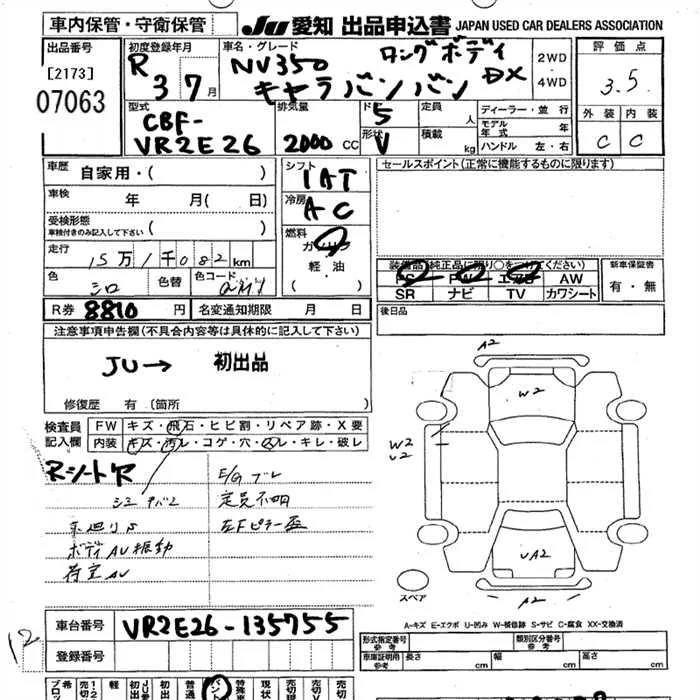 車内保管・守衛保管
JU 愛知 出品申込書 JAPAN USED CAR DEALERS ASSOCIATION
出品番号
[2173]
07063
初度登録年月
R 3 7月
車名・グレード
NV350 ロングボディ
キャラバンバン DX
2WD・4WD
評価点
3.5
外装 内装
C C
型式
CBF-
VR2E26
排気量
2000 CC
ドア
5
形状
V
定員 人
積載 kg
ディーラー・並行
モデル年式 年
ハンドル 左・右
車歴 自家用・( )
車検 年 月(日)
受検形態
車検付きのみ記入して下さい ( )
走行 15万1千082km
色 シロ 色替 色コード QM1
R券 8810円 名変通知期限 月 日
シフト
IAT
冷房
AC
燃料
ガソリン
軽油
セールスポイント(正常に機能するものに限ります)
装備品(純正品に限り○をつけてください)
PS PW エアB AW
SR ナビ TV カワシート
新車保証書
有・無
後日品
注意事項申告欄(不具合内容等は具体的に記入して下さい)
JU→ 初出品
修復歴 有〔箇所
検査員記入欄
FW キズ・飛石・ヒビ割・リペア跡・X要
内装 キズ・汚レ・コゲ・穴・スレ・キレ・破レ
シートナ
E/Gブレ
定員不明
ボディAU振動
A2
W2
W2
U2
UA2
A2
スペア
A-キズ E-エクボ U-凹み W-補修跡 S-サビ C-腐食 XX-交換済
12
車台番号 VR2E26-135755
登録番号
形式指定番号 参考
類別区分番号 参考
車庫証明用 参考 長さ cm 幅 cm 高さ cm